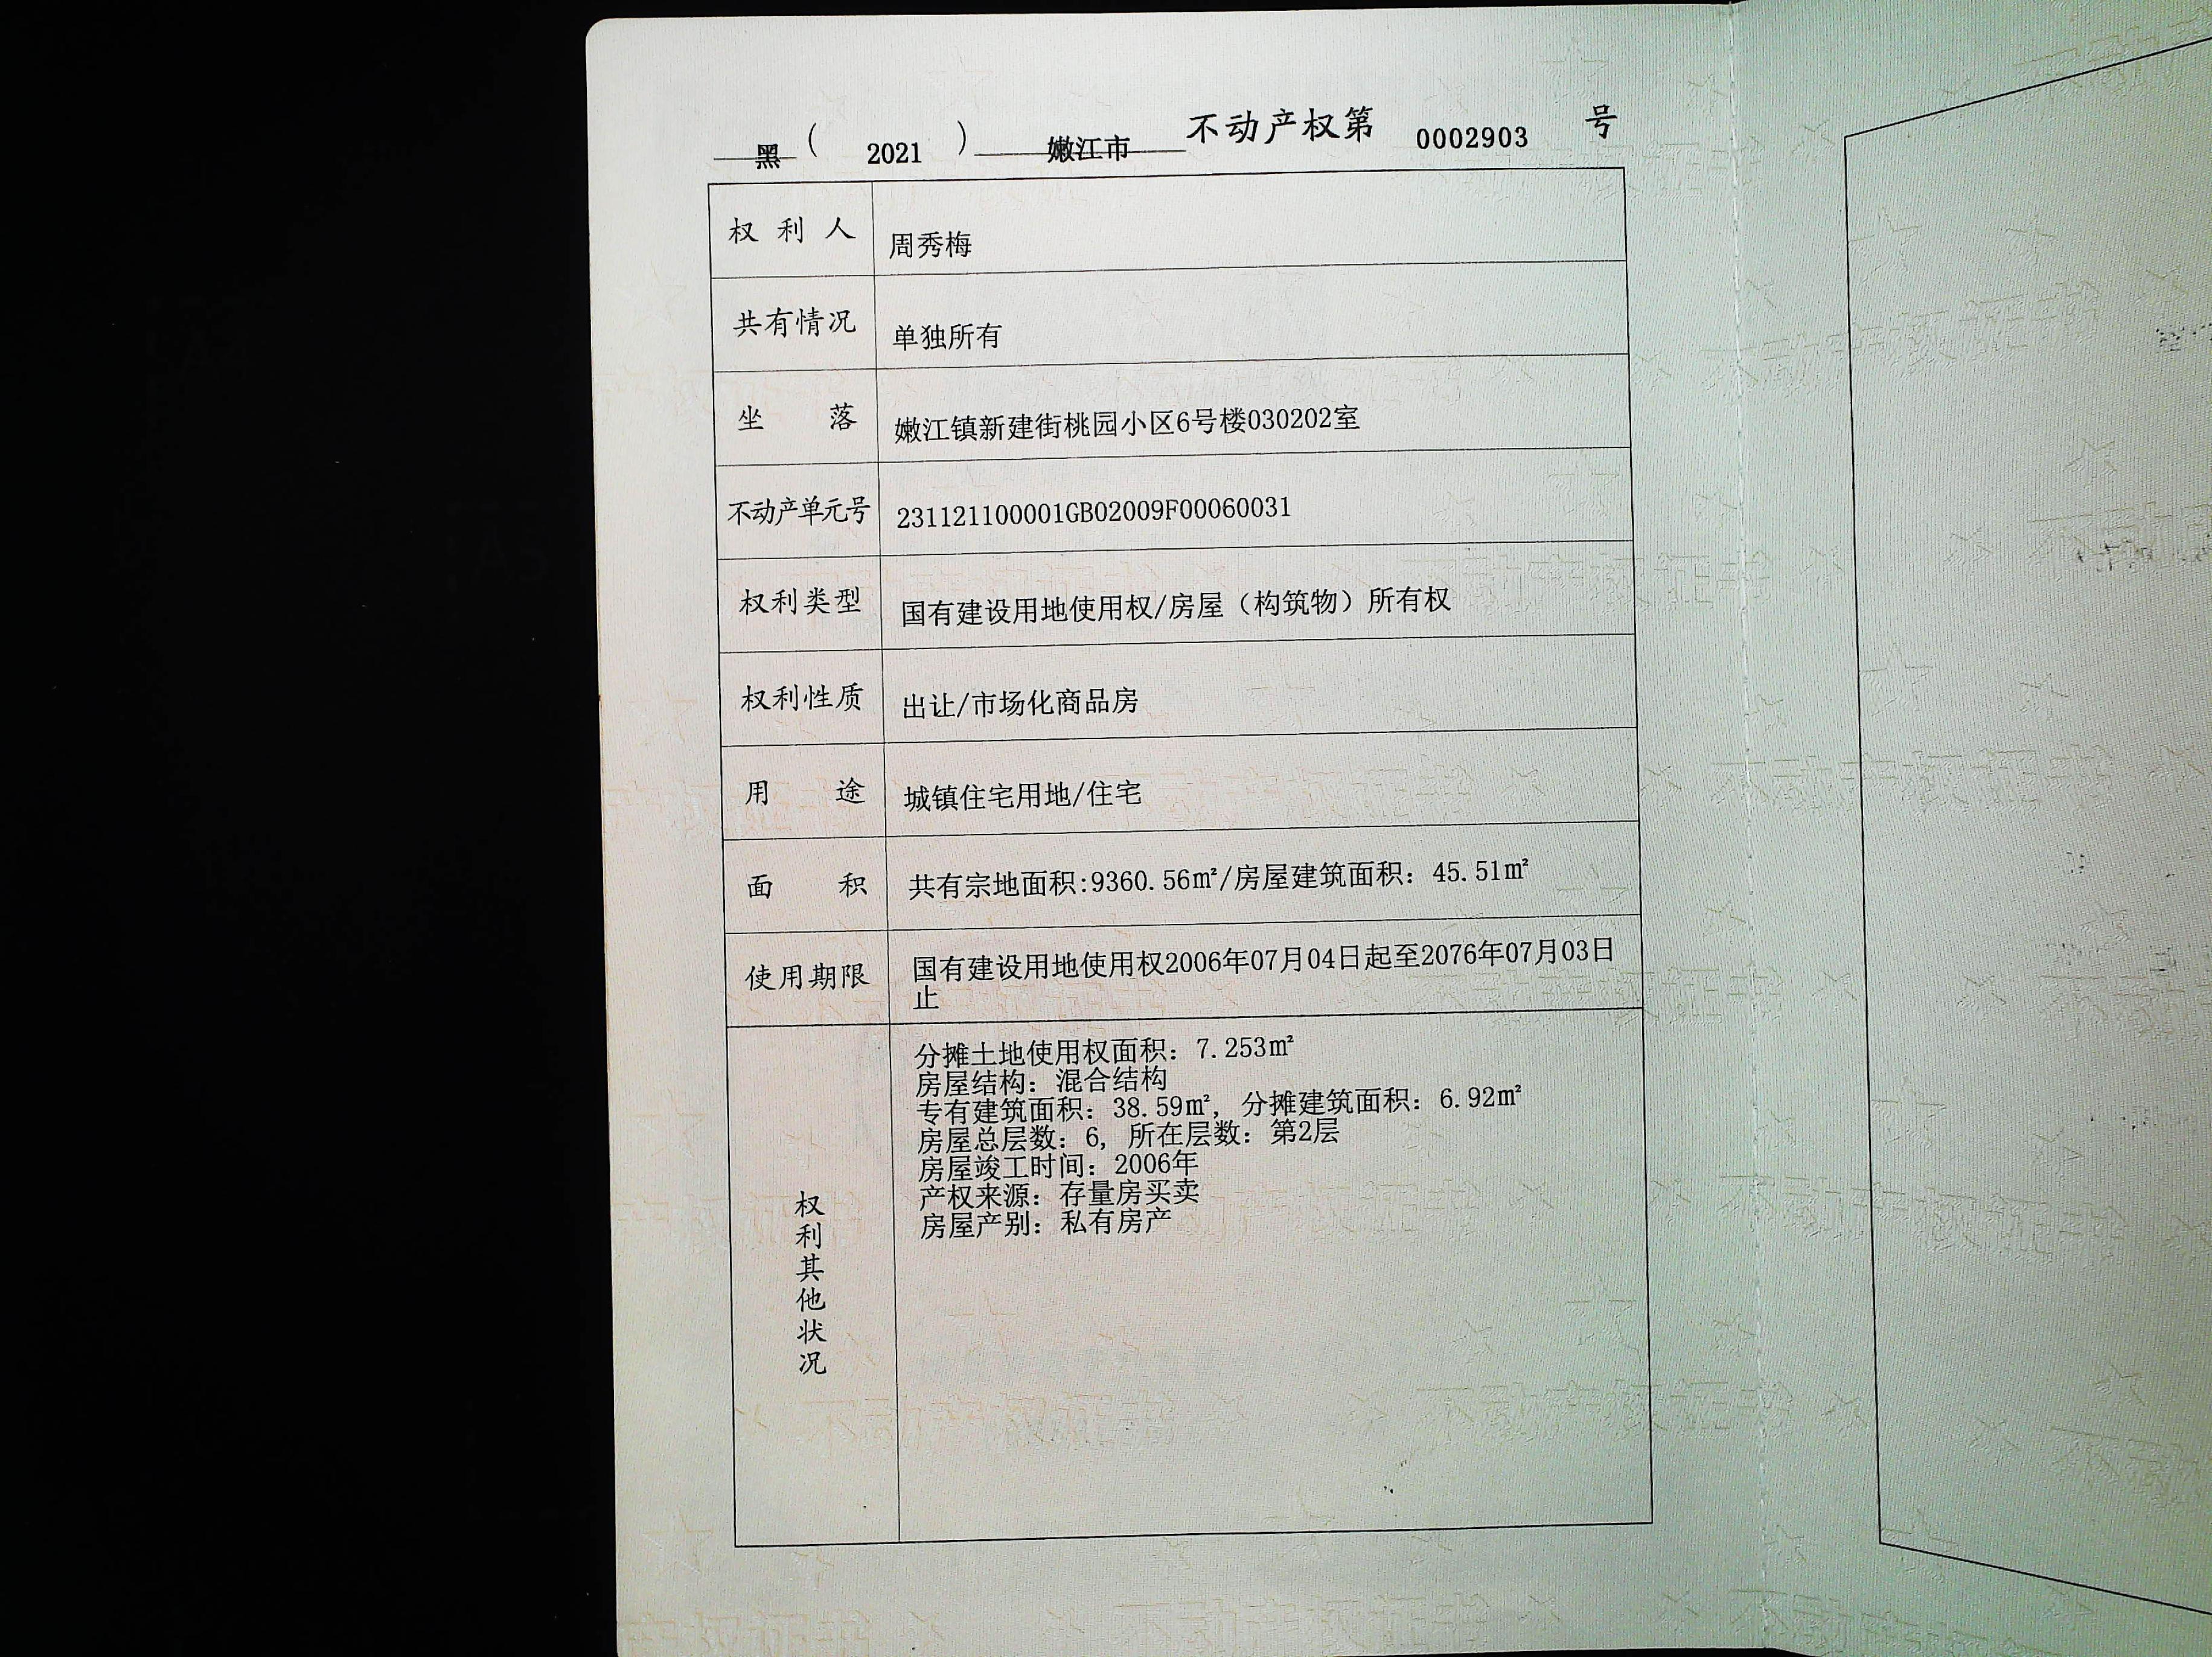 黑(2021)嫩江市不动产权第0002903号
权利人 周秀梅
共有情况 单独所有
坐落 嫩江镇新建街桃园小区6号楼030202室
不动产单元号 231121100001GB02009F00060031
权利类型 国有建设用地使用权/房屋（构筑物）所有权
权利性质 出让/市场化商品房
用途 城镇住宅用地/住宅
面积 共有宗地面积:9360.56㎡/房屋建筑面积：45.51㎡
使用期限 国有建设用地使用权2006年07月04日起至2076年07月03日
止
权利其他状况
分摊土地使用权面积：7.253㎡
房屋结构：混合结构
专有建筑面积：38.59㎡，分摊建筑面积：6.92㎡
房屋总层数：6，所在层数：第2层
房屋竣工时间：2006年
产权来源：存量房买卖
房屋产别：私有房产